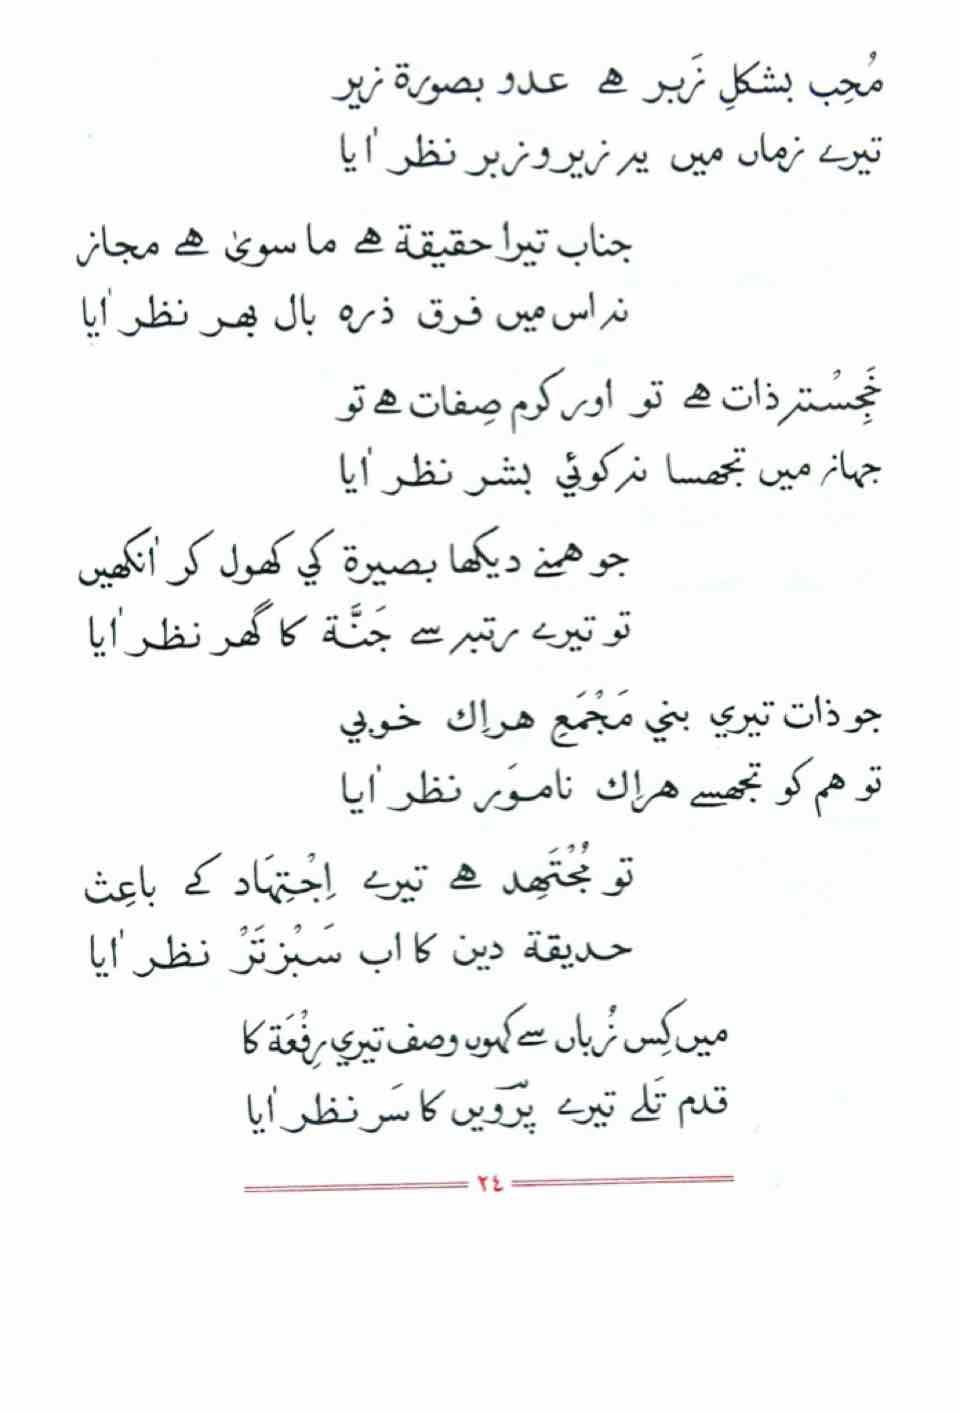 مُحِب بشکلِ زَبر ہے عدو بصورۃ زیر
تیرے زماں میں یہ زیر و زبر نظر اٰیا
جناب تیرا حقیقۃ ہے ما سویٰ ہے مجاز
نہ اس میں فرق ذرہ بال بھر نظر اٰیا
خَجِسْتہ ذات ہے تو اور کرم صِفات ہے تو
جہاں میں تجھسا نہ کوئي بشر نظر اٰیا
جو ہمنے دیکھا بصیرۃ کي کھول کر اٰنکھیں
تو تیرے رتبہ سے جَنَّۃ کا گھر نظر اٰیا
جو ذات تیري بني مَجْمَعِ ہر اِك خوبي
تو ہم کو تجھسے ہر اِك ناموَر نظر اٰیا
تو مُجْتَہِد ہے تیرے اِجْتِہَاد کے باعِث
حدیقۃ دین کا اب سَبْز تَرْ نظر اٰیا
میں کِس زُباں سے کہوں وصف تیري رِفْعَۃ کا
قدم تَلے تیرے پرّویں کا سَر نظر اٰیا
٢٤